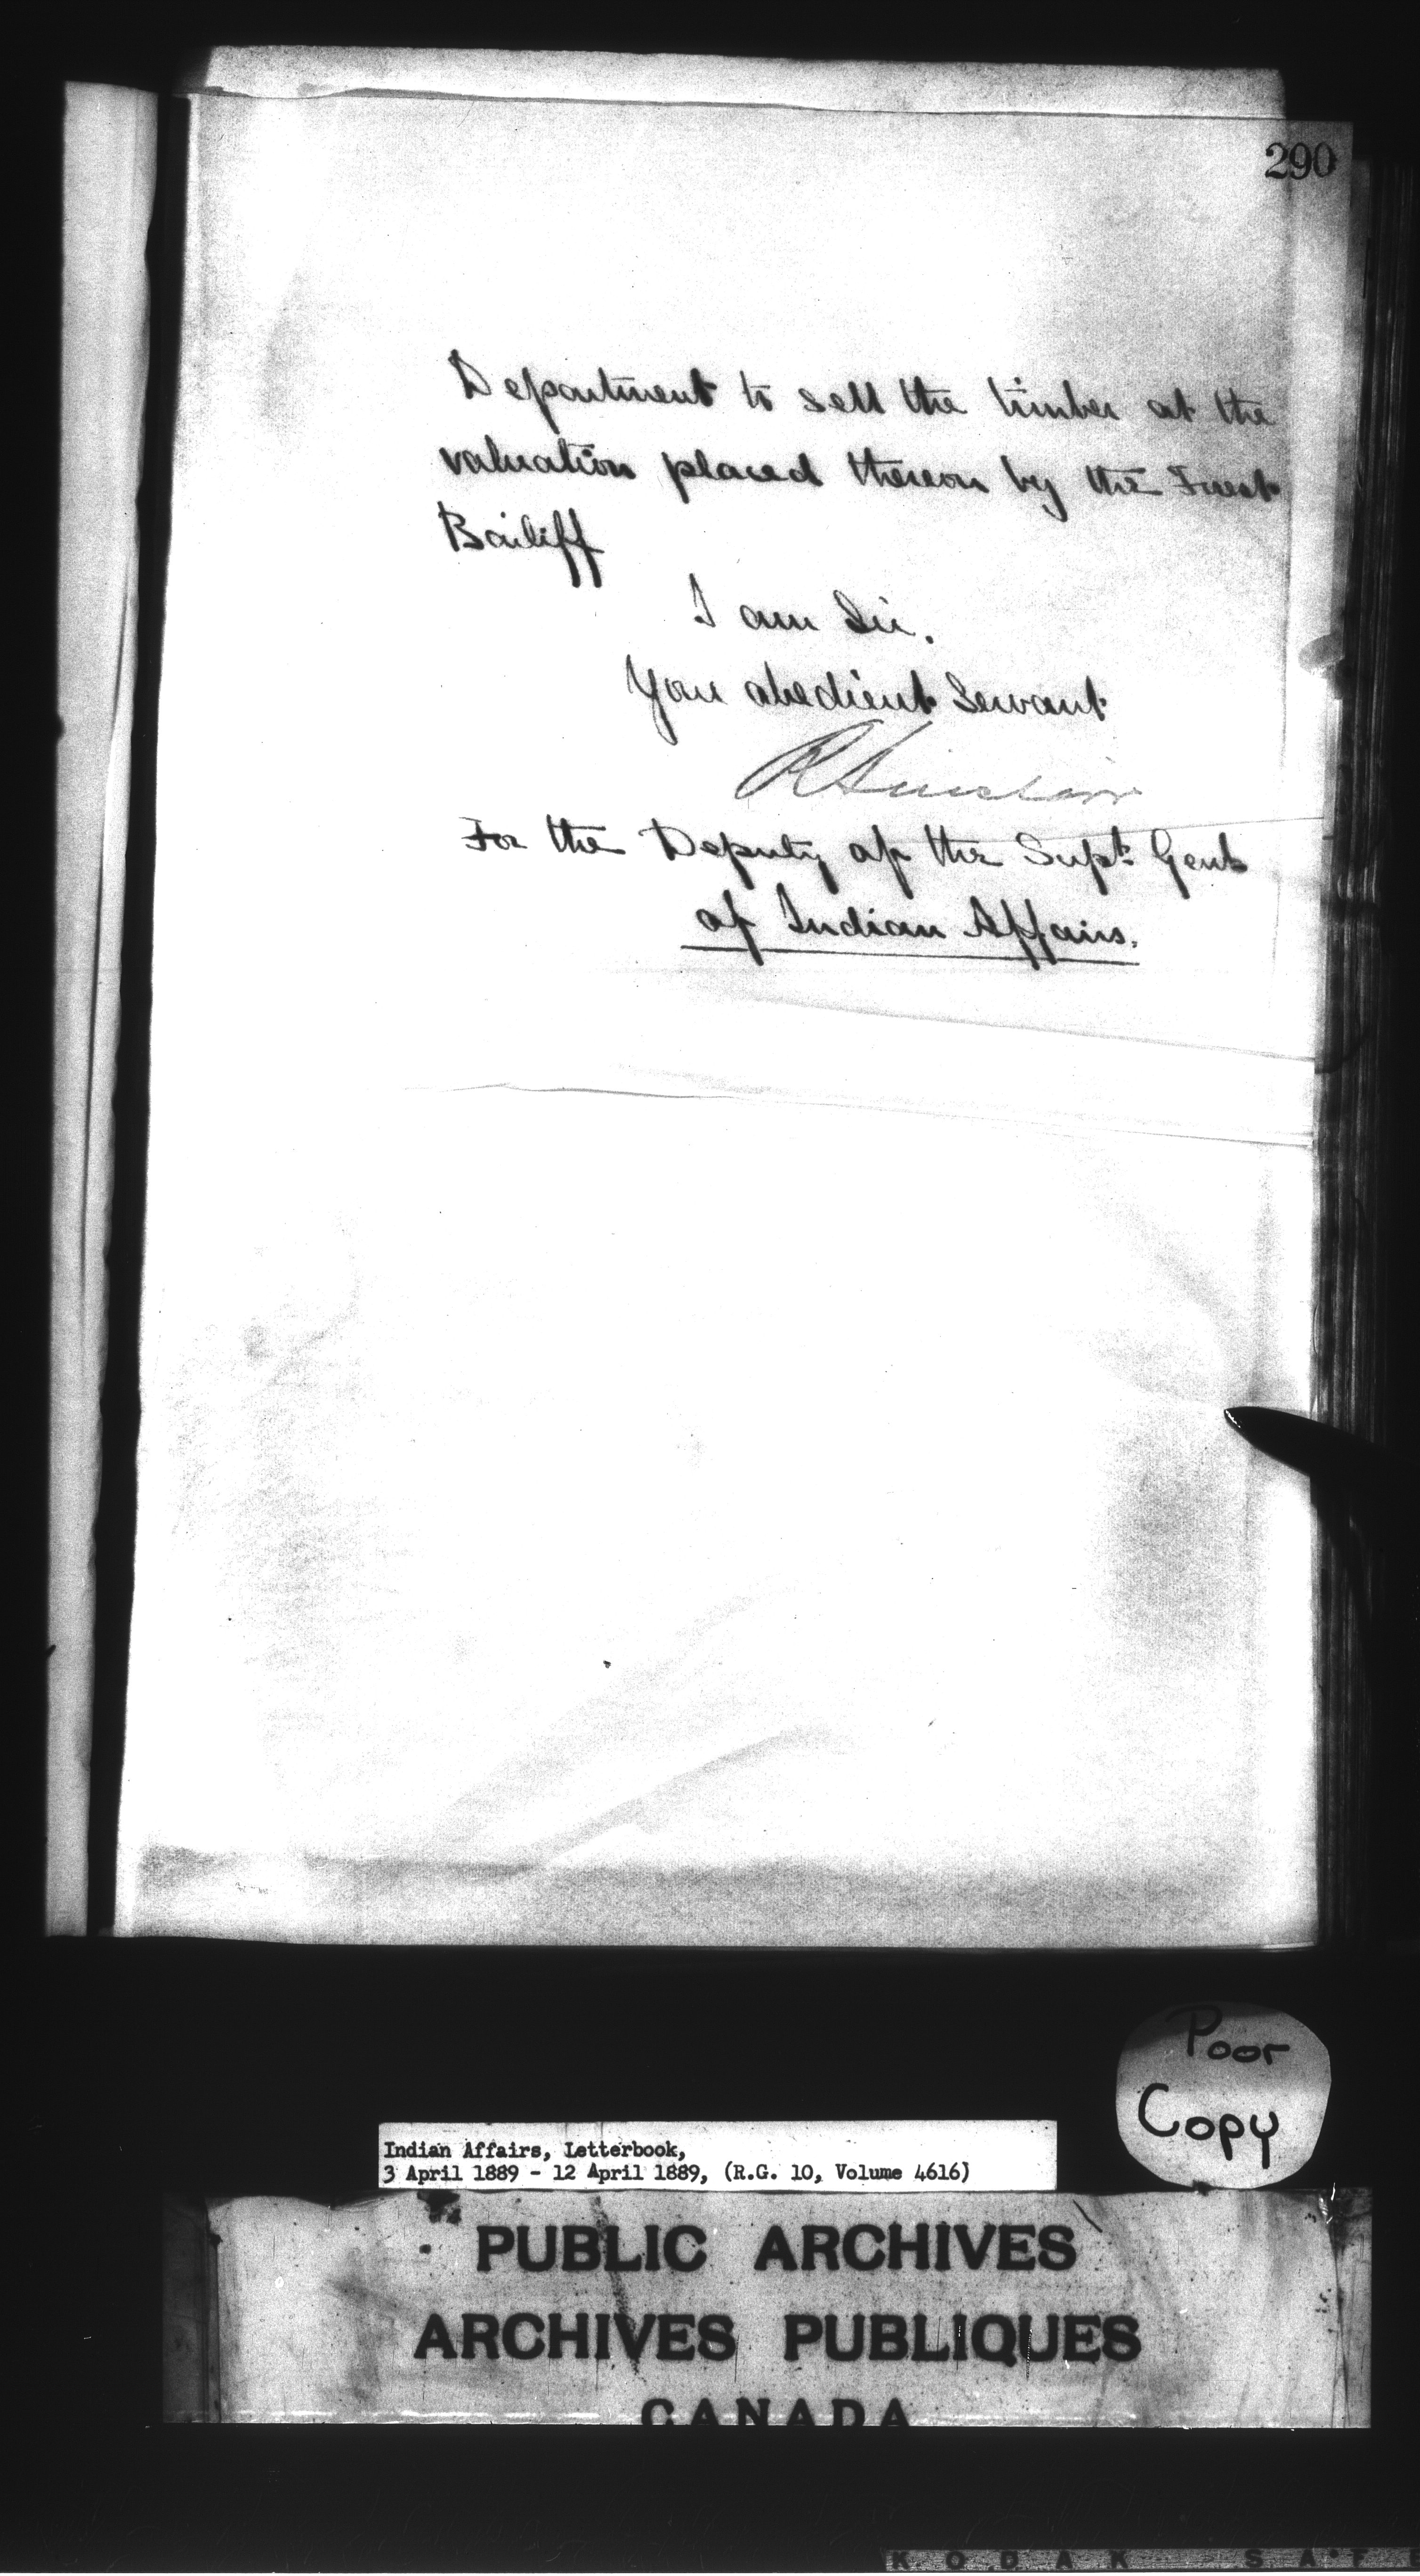 290
Department to sell the timber at the
valuation placed thereon by the Forest
Bailiff
I am Sir.
Your obedient Servant
R Sinclair
For the Deputy of the Supt. Genl
of Indian Affairs.
Poor
Copy
Indian Affairs, Letterbook,
3 April 1889 - 12 April 1889, (R.G. 10, Volume 4616)
PUBLIC ARCHIVES
ARCHIVES PUBLIQUES
CANADA
KODAK SAFE